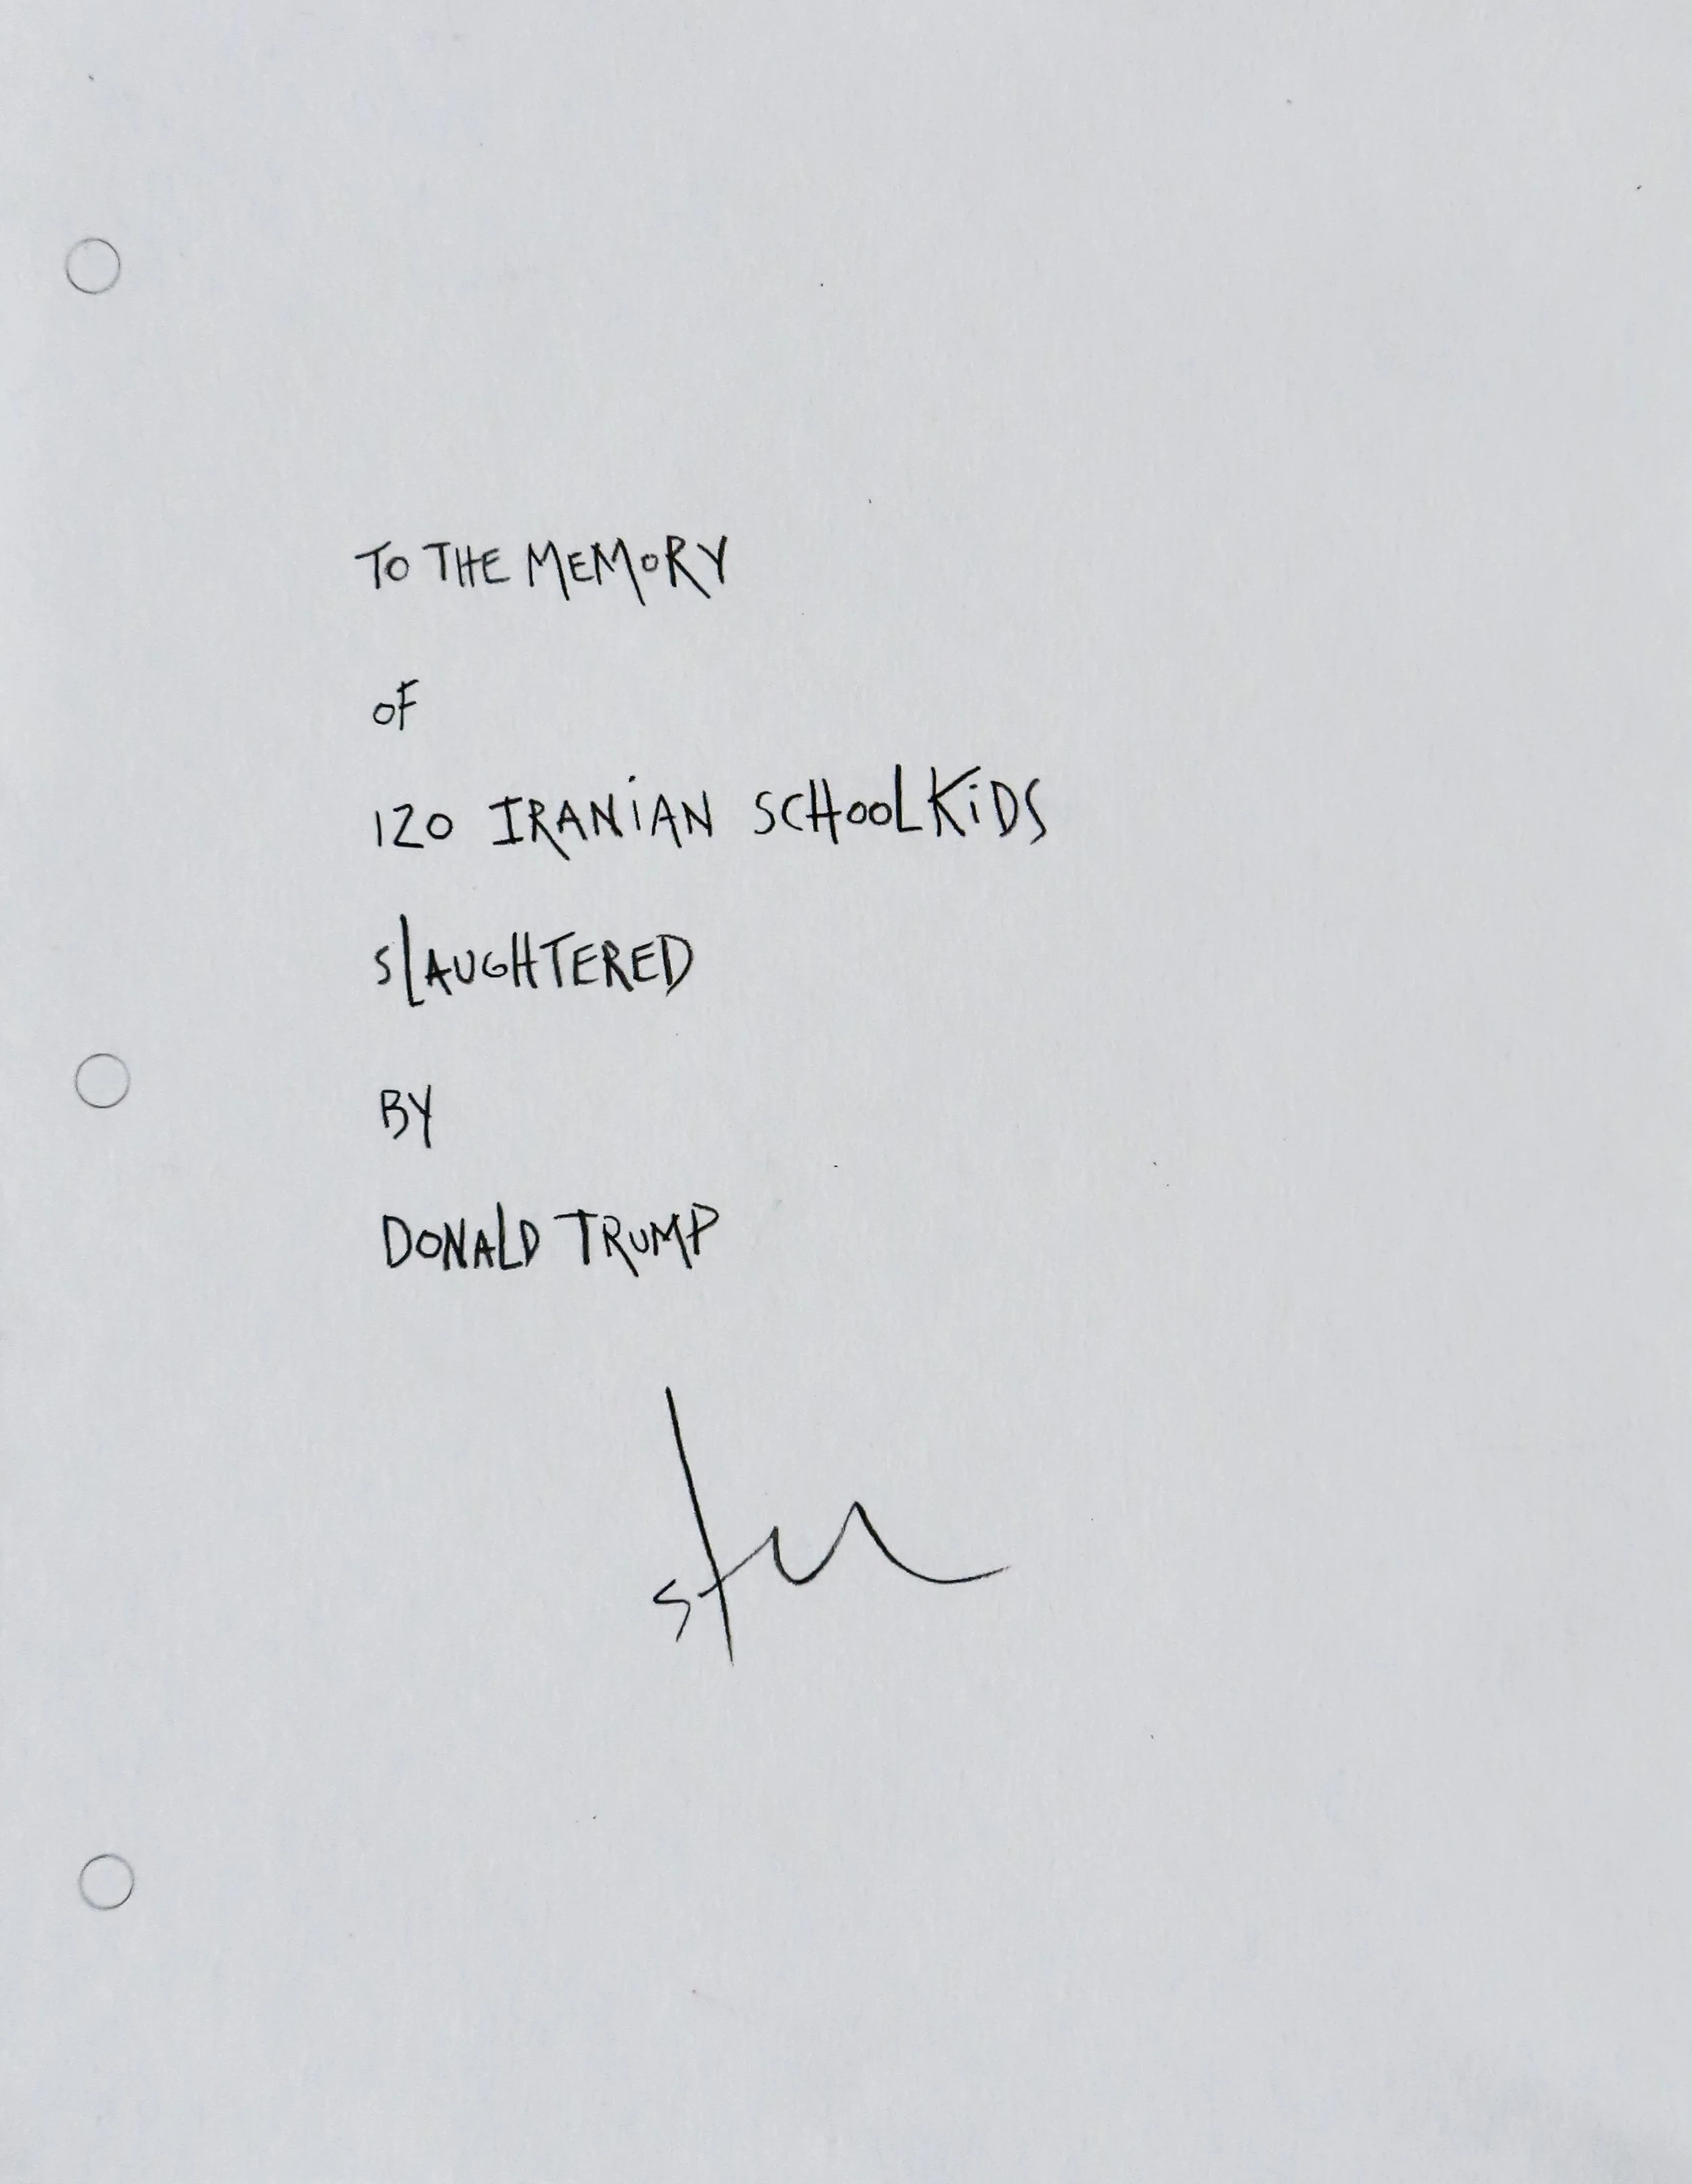 TO THE MEMORY
OF
120 IRANIAN SCHOOLKIDS
SLAUGHTERED
BY
DONALD TRUMP